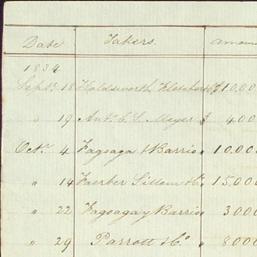 Date Takers. amoun
1834
Sept. 18 Holdsworth Fletcher & Co 10.00
" 19 Ant. C. L. Meyer & 4.00
Oct. 4 Fagoaga & Barrio 10.00
" 14 Faerber Sillem & Co. 15,00
" 22 Fagoaga y Barrio 3000
" 29 Parrott & Co 8000